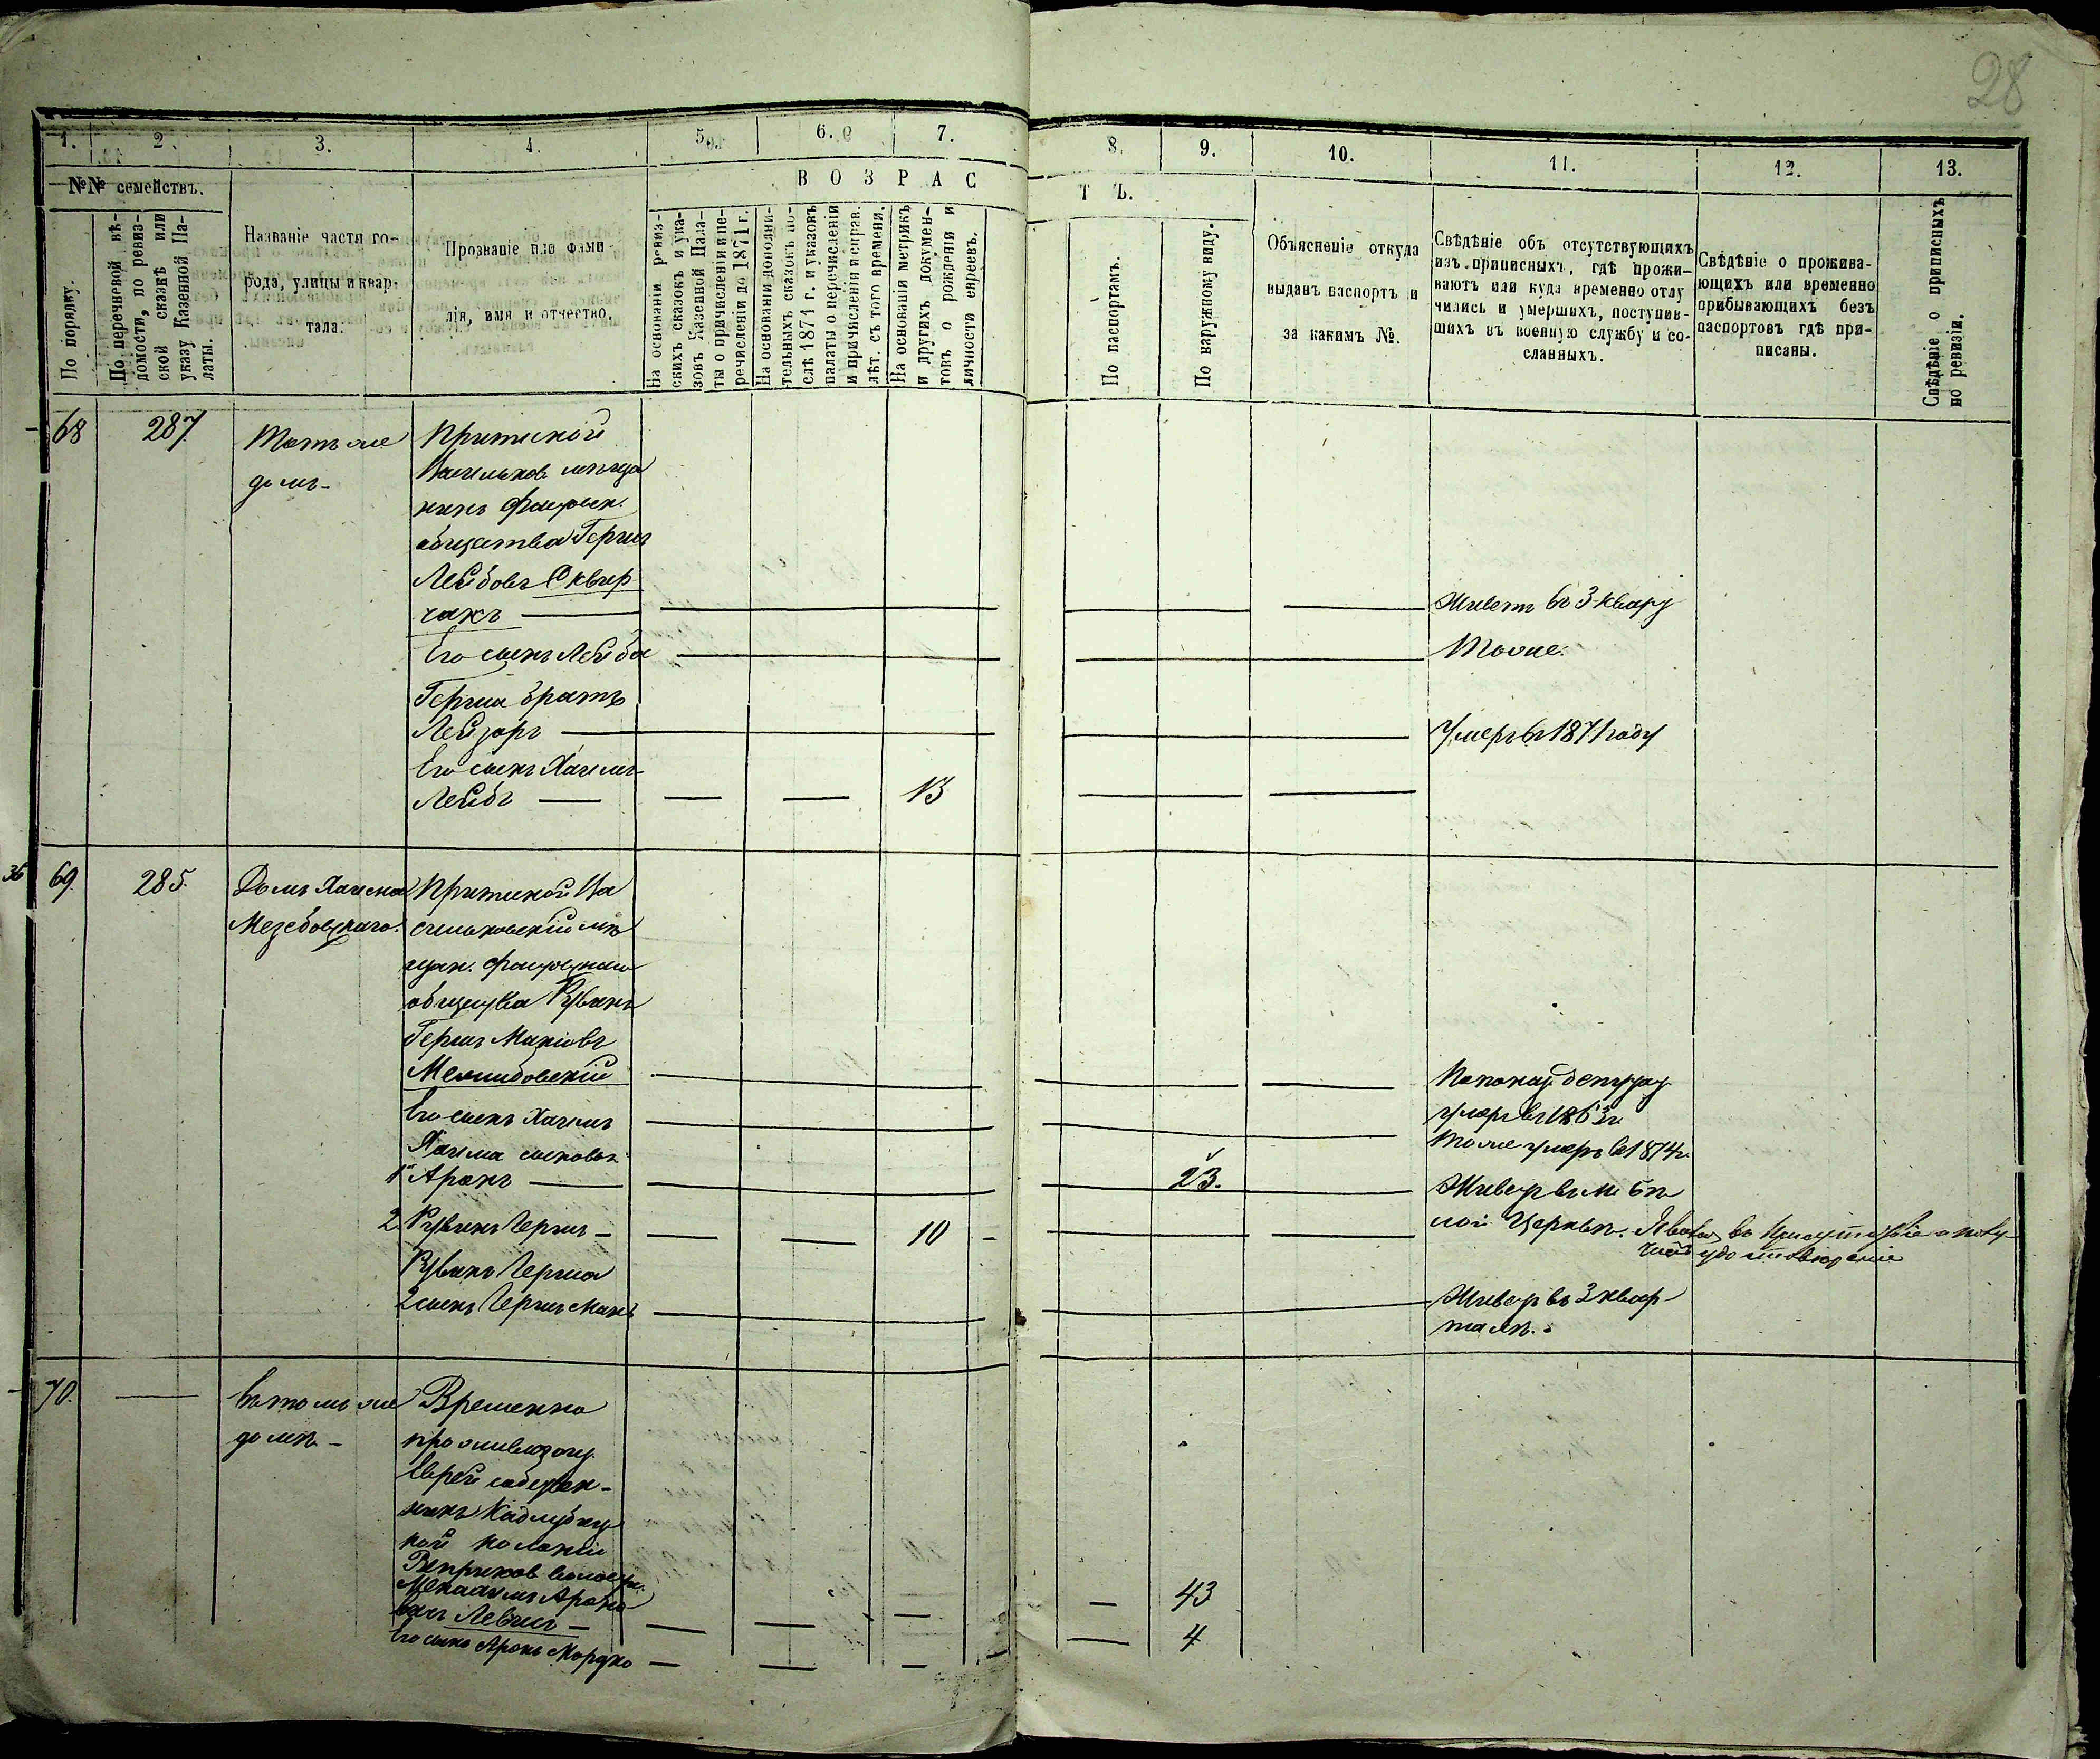 28
1. 2. 3. 4. 5. 6. 7. 8. 9. 10. 11. 12. 13.
№№ семействъ.
По порядку.
По перечневой вѣ-
домости, по ревиз-
ской сказкѣ или
указу Казенной Па-
латы.
Названіе части го-
рода, улицы и квар-
тала.
Прозваніе или фами-
лія, имя и отчество.
ВОЗРАСТЪ.
На основаніи ревиз-
скихъ сказокъ и ука-
зовъ Казенной Пала-
ты о причисленіи и пе-
речисленіи до 1871 г.
На основаніи дополни-
тельныхъ сказокъ по-
слѣ 1871 г. и указовъ
палаты о перечисленіи
и причисленіи и справ.
лѣт. съ того времени.
На основаніи метрикъ
и другихъ докумен-
товъ о рожденіи и
личности евреевъ.
По паспортамъ.
По наружному виду.
Объясненіе откуда
выданъ паспортъ и
за какимъ №.
Свѣдѣніе объ отсутствующихъ
изъ приписныхъ, гдѣ прожи-
ваютъ или куда временно отлу
чились и умершихъ, поступив-
шихъ въ военную службу и со-
сланныхъ.
Свѣдѣніе о прожива-
ющихъ или временно
прибывающихъ безъ
паспортовъ гдѣ при-
писаны.
Свѣдѣніе о приписныхъ
по ревизіи.
68 287. Тотъ же
домъ
Васильков мѣща
нинъ
общества Герш
Лейбовъ Сквер
чакъ Живетъ въ 3 кварт
Его сынъ Лейба Тоже.
Герша братъ
Лейзоръ Умеръ въ 1871 году
Его сынъ Хаимъ
Лейбъ 13
36 69. 285. Домъ Хаима
Межибовскаго.
Ва
сильковскій мѣ
щан.
общества Рувинъ
Гершъ
Межибовскій
умеръ въ 1863 г.
Его сынъ Хаимъ
тоже умеръ въ 1874 г.
Хаима сыновья
1 Аронъ 23. Живетъ въ м. Бѣ
лой Церкви.
2 Рувинъ Гершъ 10
въ Присутствіе и полу
удостовѣреніе
Рувинъ Герша
2 сынъ Гершъ Живетъ въ 3 квар
талѣ.
70. Въ томъ же
домѣ
Временно
проживающ.
Еврей собствен-
никъ Кадлубиц
кой колоніи
Ароно
вичъ Левинъ 43
Его сынъ Аронъ Мордко 4